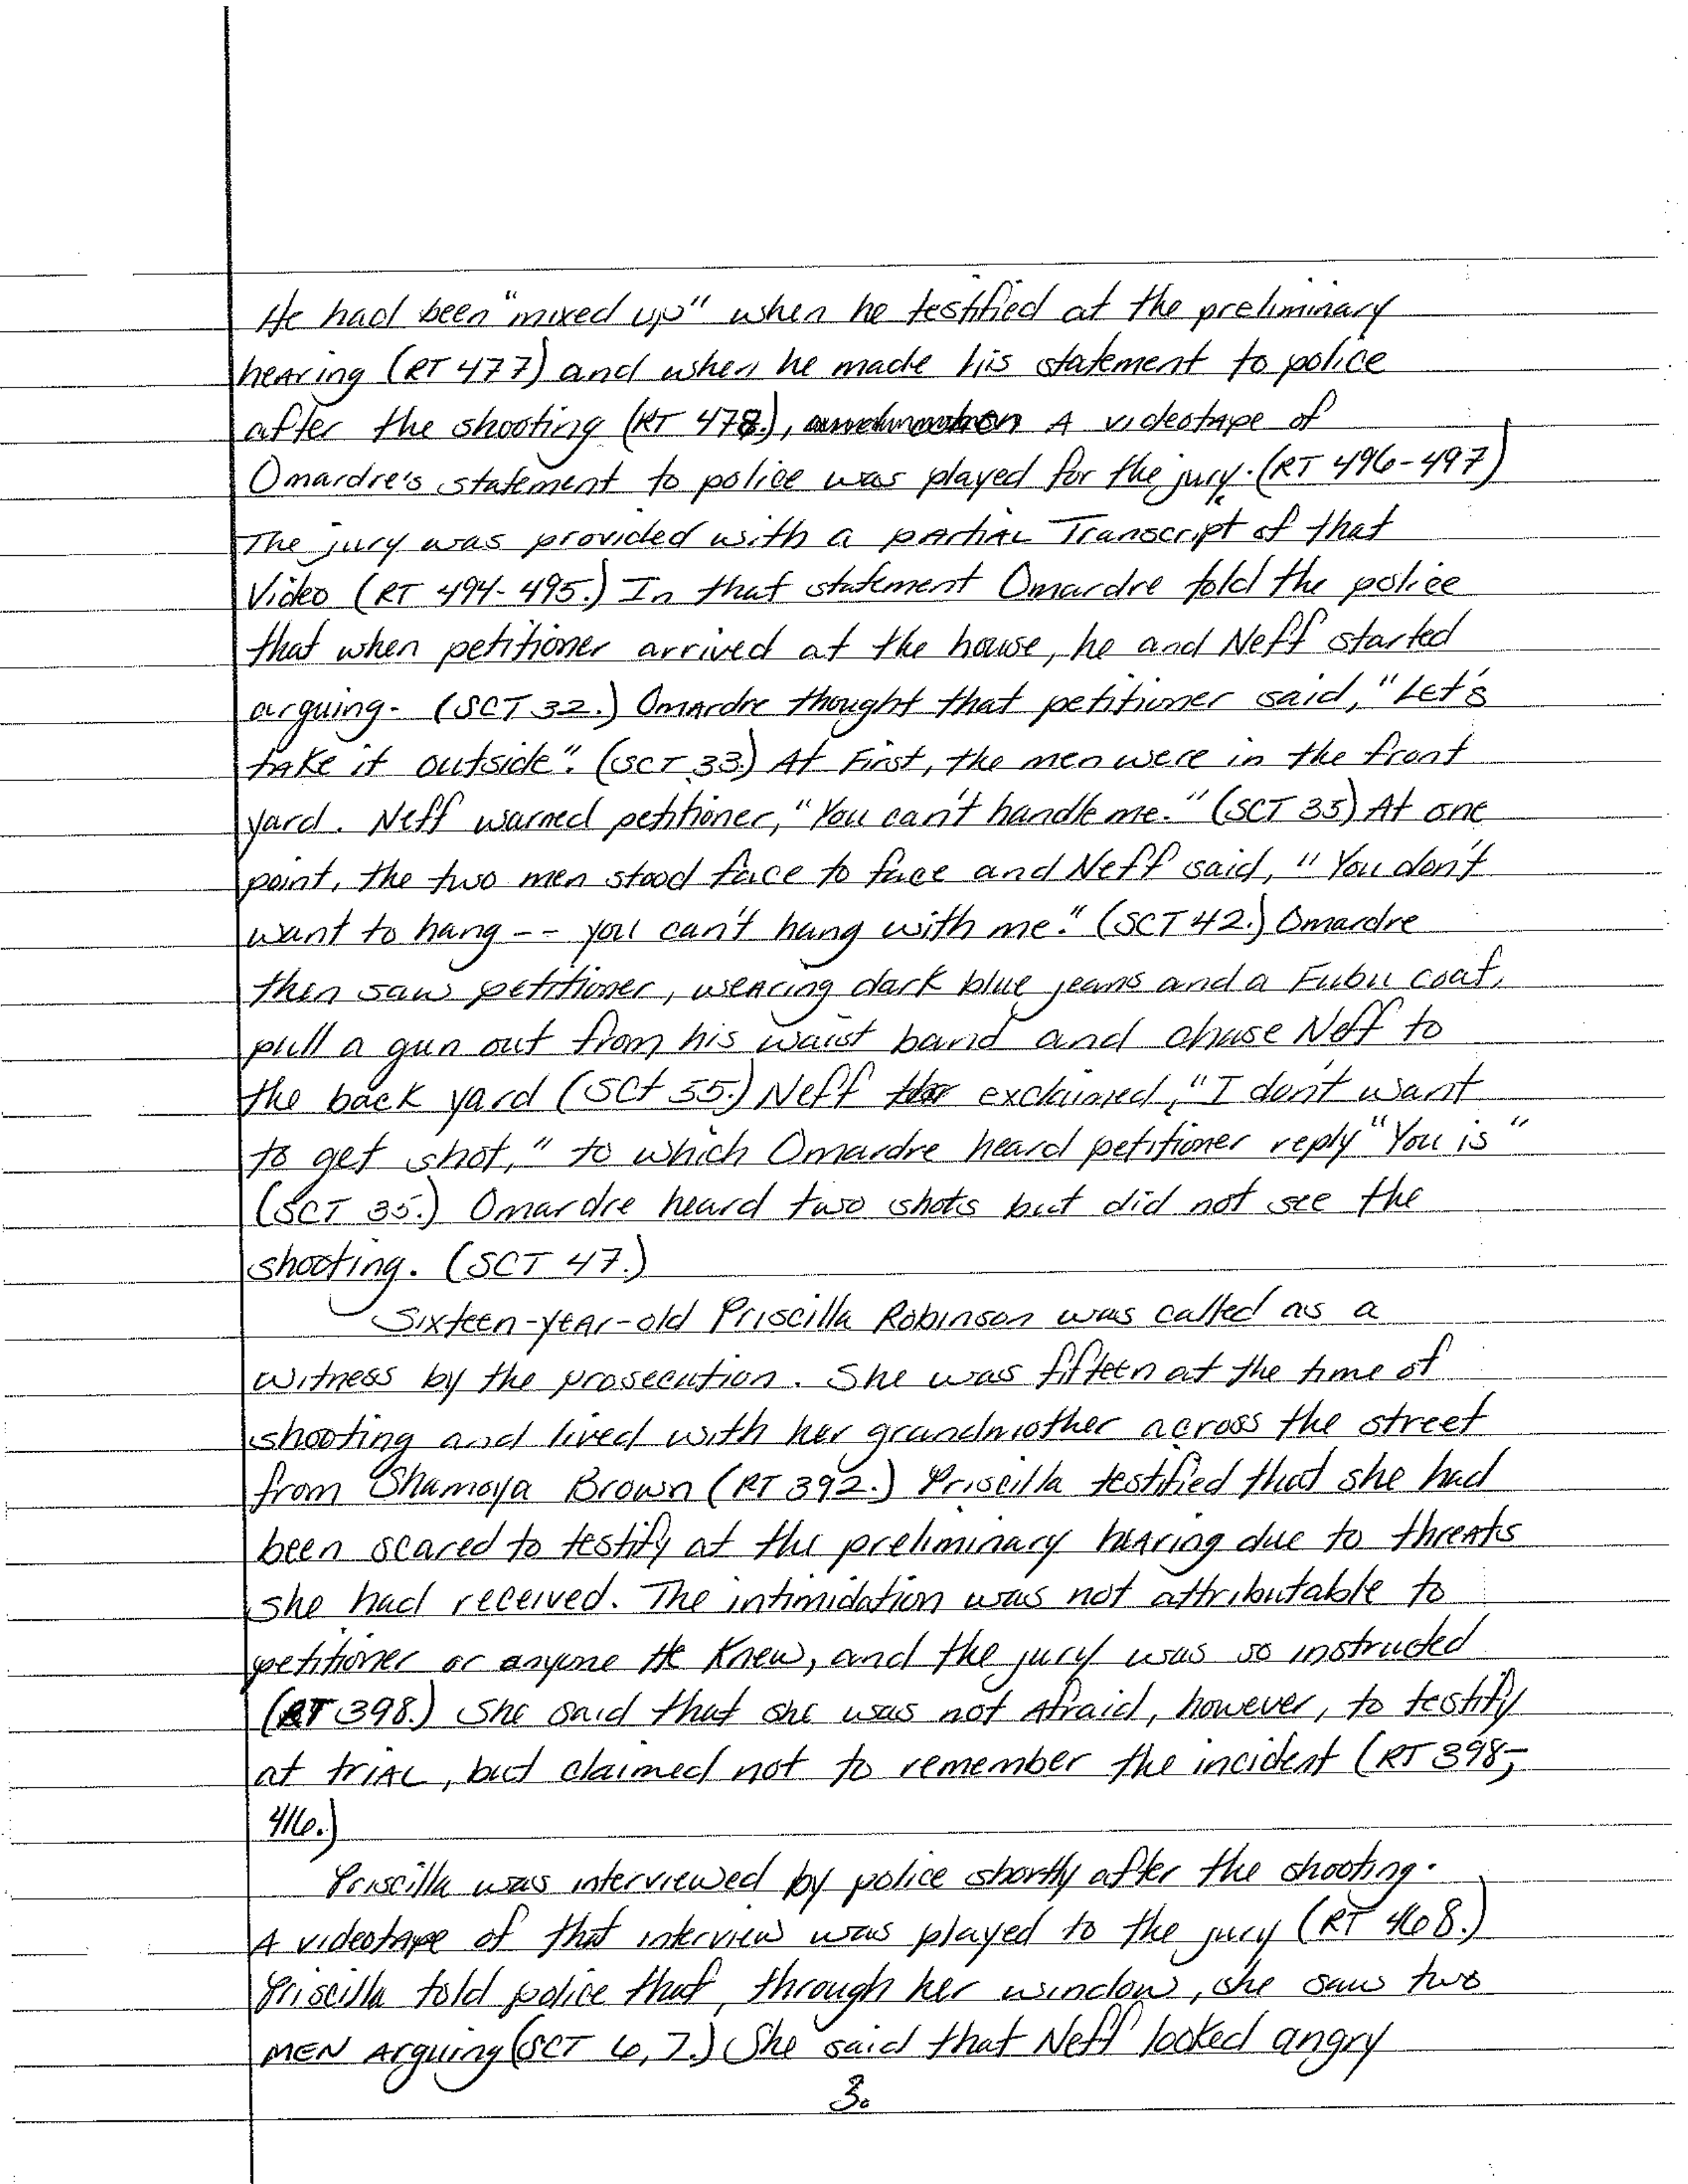 He had been "mixed up" when he testified at the preliminary
hearing (RT 477) and when he made his statement to police
after the shooting (RT 478.), A videotape of
Omardre's statement to police was played for the jury. (RT 496-497)
The jury was provided with a partial Transcript of that
Video (RT 494-495.) In that statement Omardre told the police
that when petitioner arrived at the house, he and Neff started
arguing. (SCT 32.) Omardre thought that petitioner said, "Let's
take it outside". (SCT 33.) At First, the men were in the front
yard. Neff warned petitioner, "You can't handle me." (SCT 35) At one
point, the two men stood face to face and Neff said, "You don't
want to hang -- you can't hang with me." (SCT 42.) Omardre
then saw petitioner, wearing dark blue jeans and a Fubu coat,
pull a gun out from his waist band and chase Neff to
the back yard (SCt 55.) Neff exclaimed, "I don't want
to get shot," to which Omardre heard petitioner reply "You is"
(SCT 35.) Omardre heard two shots but did not see the
shooting. (SCT 47.)
Sixteen-year-old Priscilla Robinson was called as a
witness by the prosecution. She was fifteen at the time of
shooting and lived with her grandmother across the street
from Shamaya Brown (RT 392.) Priscilla testified that she had
been scared to testify at the preliminary hearing due to threats
she had received. The intimidation was not attributable to
petitioner or anyone He Knew, and the jury was so instructed
(RT 398.) She said that she was not Afraid, however, to testify
at trial, but claimed not to remember the incident (RT 398;
416.)
Priscilla was interviewed by police shortly after the shooting.
A videotape of that interview was played to the jury (RT 468.)
Priscilla told police that, through her window, she saw two
MEN Arguing (SCT 6, 7.) She said that Neff looked angry
3.